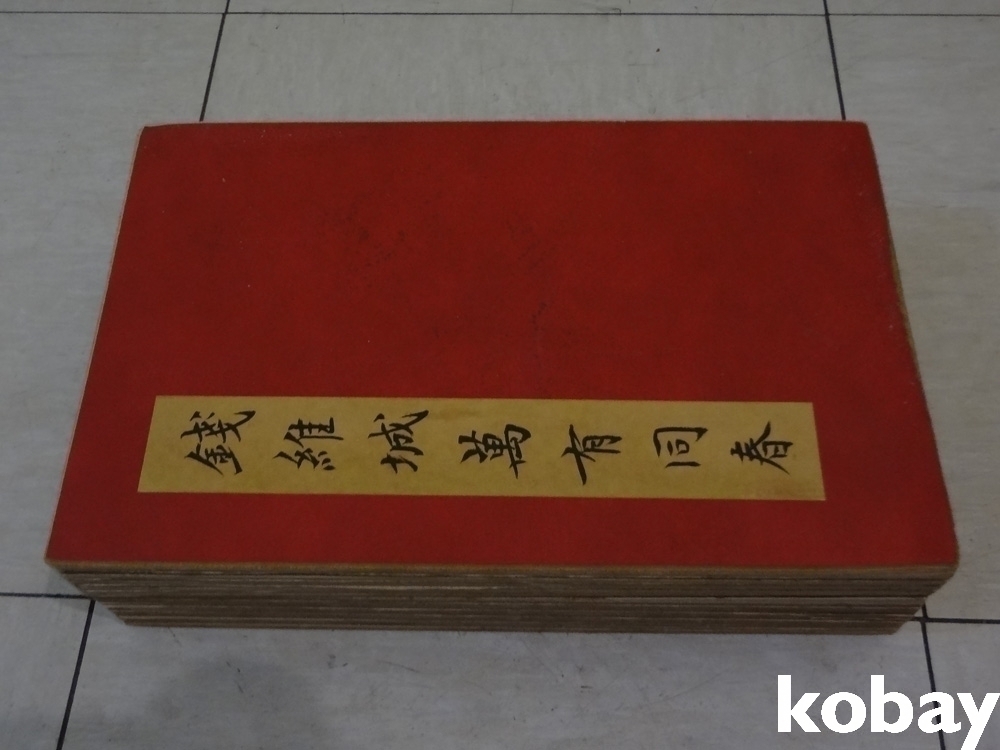 錢維城萬有同春
kobay